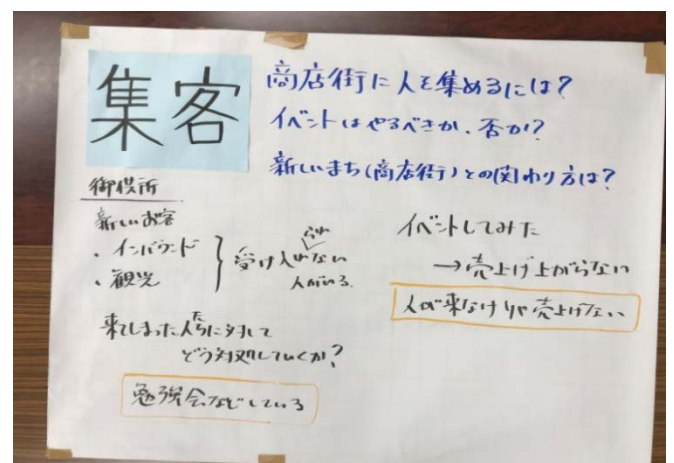 集客
商店街に人を集めるには?
イベントはやるべきか、否か?
新しいまち(商店街)との関わり方は?
新しいお客
・インバウンド
・観光
受け入れない
られ
人がいる
来てしまった人たちに対して
どう対処していくか?
勉強会などしている
イベントしてみた
→売上げ上がらない
人が来なけりゃ売上げない